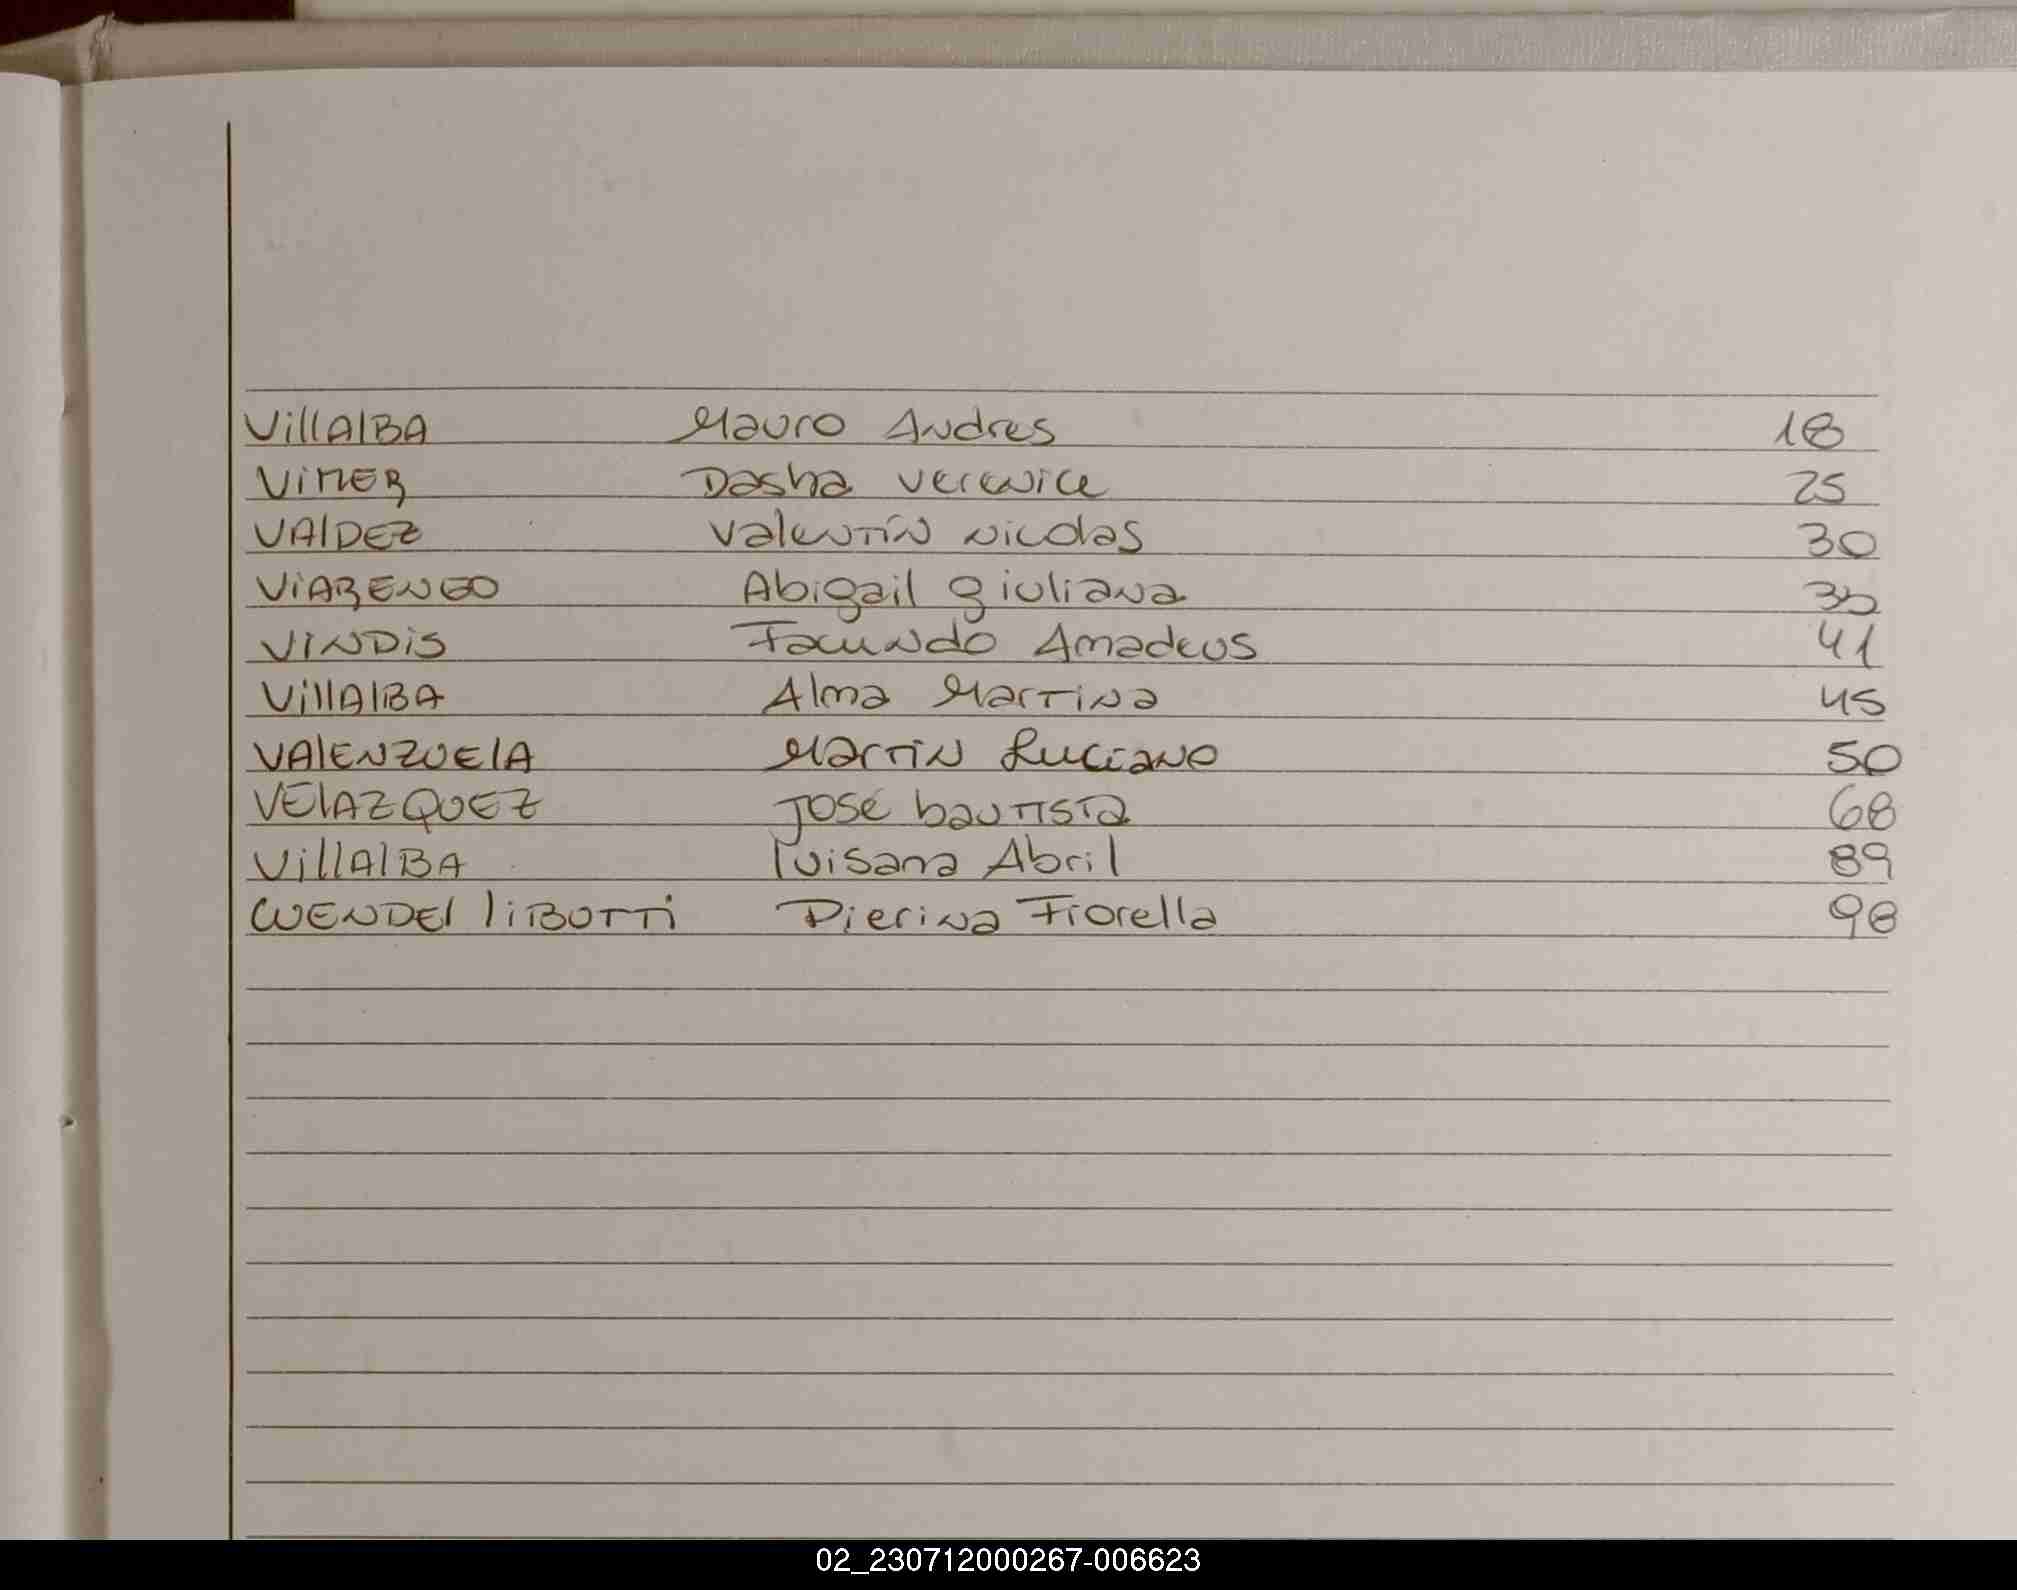 VillAlBA Mauro Andres 18
ViMER Dasha Verenice 25
VAlDEZ Valentín Nicolas 30
ViARENGO Abigail Giuliana
ViNDiS Facundo Amadeus 41
VillAlBA Alma Martina 45
VAlENZUElA Martín Luciano 50
VElAZQUEZ José bautista 68
VillAlBA luisana Abril 89
WENDEl liBOTTi Pierina Fiorella 98
02_230712000267-006623